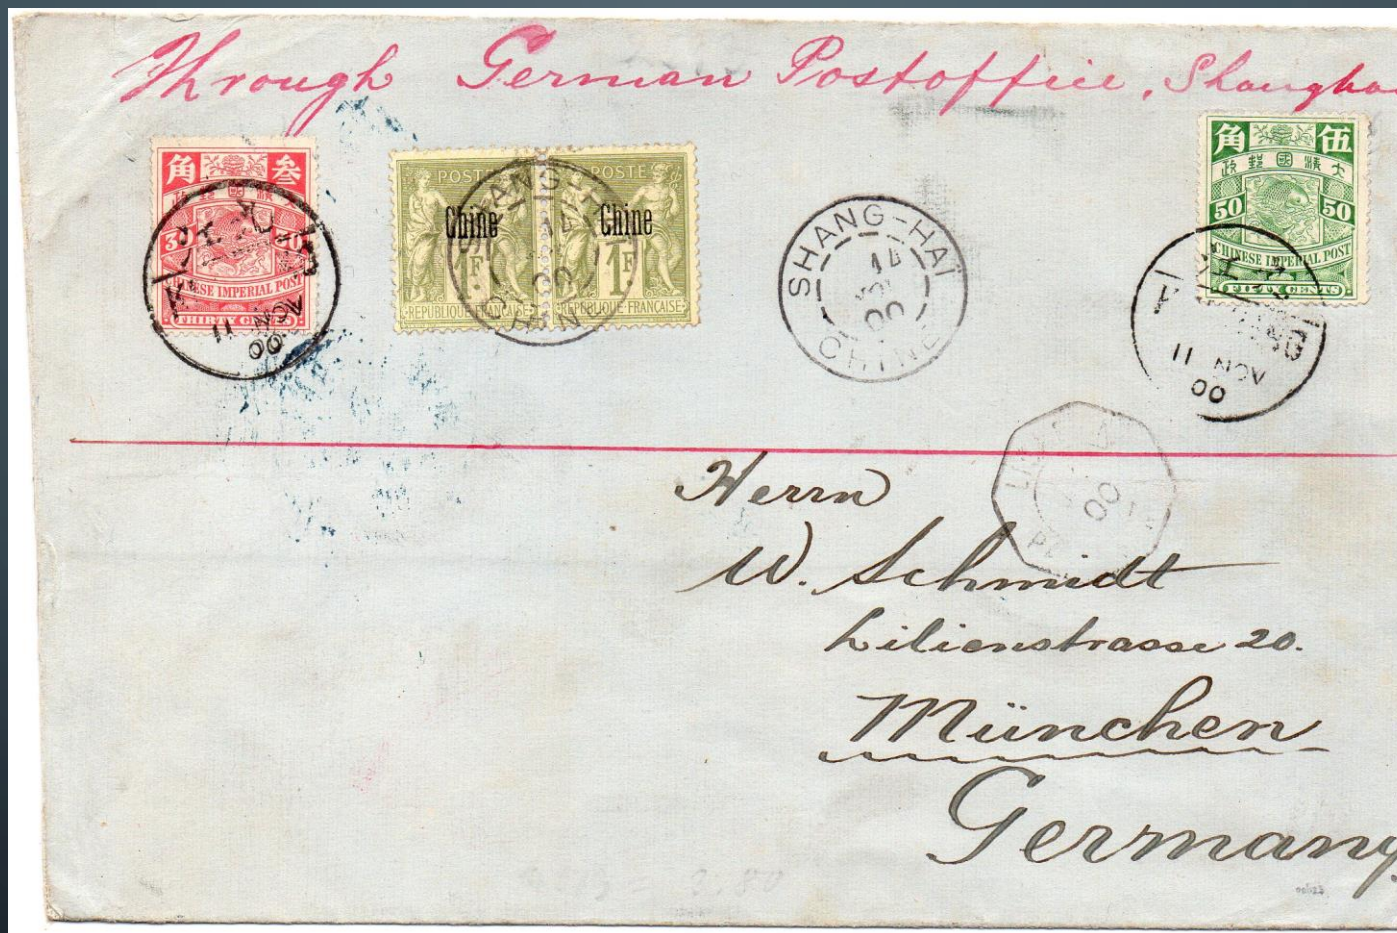 Through German Postoffice, Shanghai
角 叁
大 清 國 郵 政
30 30
CHINESE IMPERIAL POST
THIRTY CENTS
POSTE
Chine
1F
REPUBLIQUE FRANÇAISE
POSTE
Chine
1F
REPUBLIQUE FRANÇAISE
SHANG-HAI
14
00
CHINE
SHANG-HAÏ
14
NOV
00
CHINE
角 伍
政 郵 國 清 大
50 50
CHINESE IMPERIAL POST
FIFTY CENTS
11 NOV
00
11 NOV
00
00
Herrn
W. Schmidt
Lilienstrasse 20.
München
Germany.